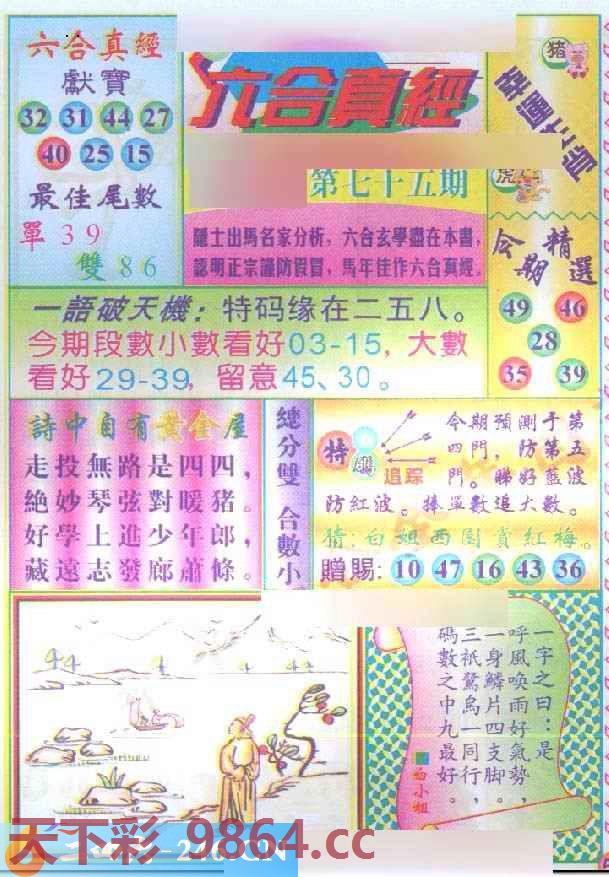 六合真經
獻寶
32 31 44 27
40 25 15
最佳尾數
單39
雙86
六合真經
第七十五期
隱士出馬名家分析，六合玄學盡在本書，
認明正宗謹防假冒，馬年佳作六合真經。
猪
虎
今期精選
49 46
28
35 39
一語破天機：特码缘在二五八。
今期段數小數看好03-15，大數
看好29-39，留意45、30。
詩中自有黃金屋
走投無路是四四，
絶妙琴弦對暖猪。
好學上進少年郎，
藏遠志發廊蕭條。
總分雙 合數小
特碼
追踪
今期預測于第
四門，防第五
門。睇好藍波
防紅波。捧單數追大數。
猜：白姐西園賞紅梅。
贈賜：10 47 16 43 36
一字之曰：是
呼風喚雨好氣勢，
一身鱗片四支脚。
三祇鴛鳥一同行，
碼數之中九最好。
天下彩 9864.cc